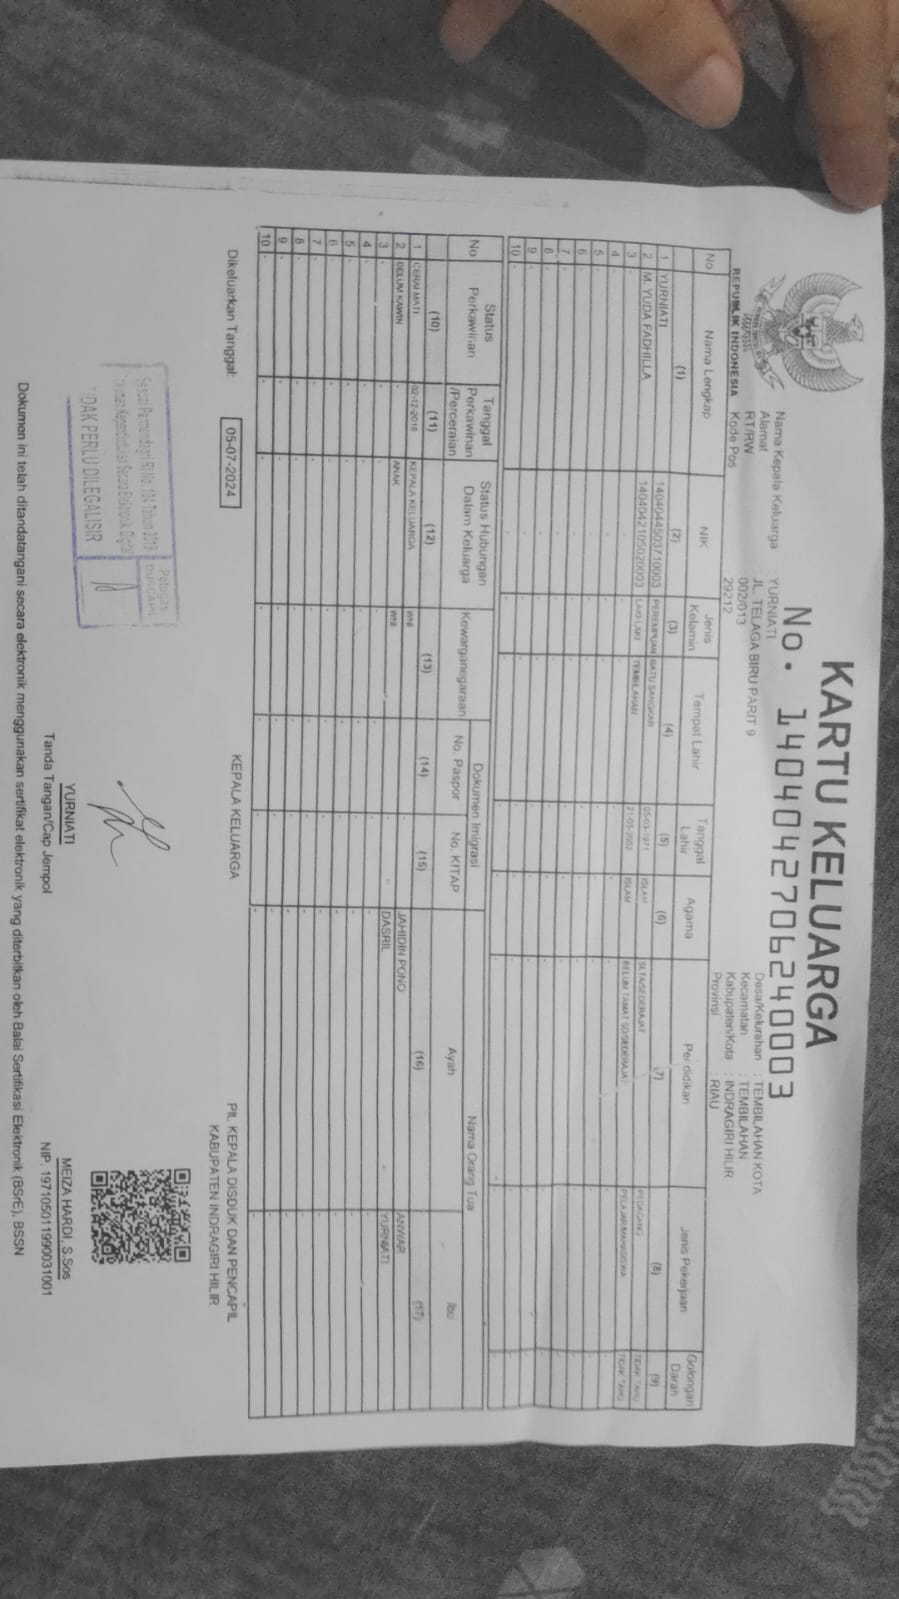 KARTU KELUARGA
No. 1404042706240003
Nama Kepala Keluarga : YURNIATI
Alamat : JL. TELAGA BIRU PARIT 9
RT/RW : 002/013
Kode Pos : 29212
Desa/Kelurahan : TEMBILAHAN KOTA
Kecamatan : TEMBILAHAN
Kabupaten/Kota : INDRAGIRI HILIR
Provinsi : RIAU
REPUBLIK INDONESIA
No Nama Lengkap NIK Jenis Kelamin Tempat Lahir Tanggal Lahir Agama Pendidikan Jenis Pekerjaan Golongan Darah
(1) (2) (3) (4) (5) (6) (7) (8) (9)
1 YURNIATI 1404044503710003 PEREMPUAN BATU SANGKAR 05-03-1971 ISLAM SLTA/SEDERAJAT PEDAGANG TIDAK TAHU
2 M. YUDA FADHILLA 1404042105020003 LAKI-LAKI TEMBILAHAN 21-05-2002 ISLAM BELUM TAMAT SD/SEDERAJAT PELAJAR/MAHASISWA TIDAK TAHU
3 - - - - - - - - -
4 - - - - - - - - -
5 - - - - - - - - -
6 - - - - - - - - -
7 - - - - - - - - -
8 - - - - - - - - -
9 - - - - - - - - -
10 - - - - - - - - -
No Status Perkawinan Tanggal Perkawinan /Perceraian Status Hubungan Dalam Keluarga Kewarganegaraan Dokumen Imigrasi Nama Orang Tua
No. Paspor No. KITAP Ayah Ibu
(10) (11) (12) (13) (14) (15) (16) (17)
1 CERAI MATI 02-12-2018 KEPALA KELUARGA WNI - - JAHIDIN PONO ANWAR
2 BELUM KAWIN - ANAK WNI - - DASRIL YURNIATI
3 - - - - - - - -
4 - - - - - - - -
5 - - - - - - - -
6 - - - - - - - -
7 - - - - - - - -
8 - - - - - - - -
9 - - - - - - - -
10 - - - - - - - -
Dikeluarkan Tanggal: 05-07-2024
KEPALA KELUARGA
Plt. KEPALA DISDUK DAN PENCAPIL
KABUPATEN INDRAGIRI HILIR
Sesuai Permendagri RI No. 104 Tahun 2019
Kependudukan Secara Elektronik Digital
TIDAK PERLU DILEGALISIR
Petugas
DUKCAPIL
YURNIATI
Tanda Tangan/Cap Jempol
MEIZA HARDI, S.Sos
NIP. 197105011990031001
Dokumen ini telah ditandatangani secara elektronik menggunakan sertifikat elektronik yang diterbitkan oleh Balai Sertifikasi Elektronik (BSrE), BSSN